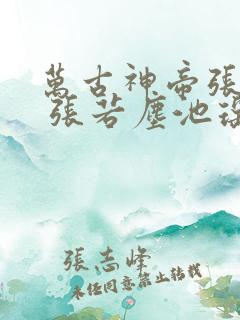 萬古神帝張
張若塵池
張志峰
未經同意禁止轉載